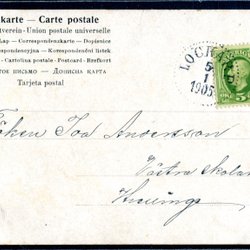 karte — Carte postale
tverein - Union postale universelle
Lap — Correspondenzkarte — Dopisnice
ondencyjna — Korrespondenční listek
- Cartolina postale - Postcard - Brefkort
ТОЕ ПИСЬМО — ДОПИСНА КАРТА
Tarjeta postal
5
1
1905
Fröken Ida Andersson
Västra Skolan